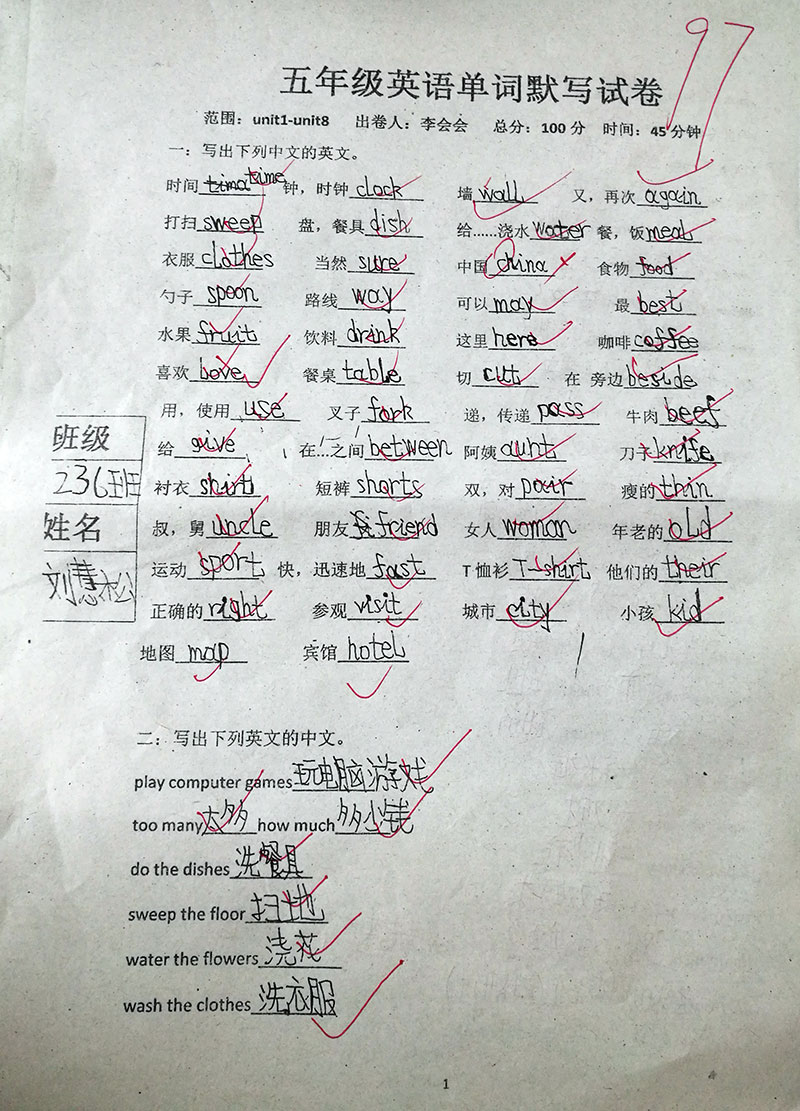 97
五年级英语单词默写试卷
范围：unit1-unit8 出卷人：李会会 总分：100分 时间：45分钟
一：写出下列中文的英文。
时间 time 钟，时钟 clock 墙 wall 又，再次 again
打扫 sweep 盘，餐具 dish 给……浇水 water 餐，饭 meal
衣服 clothes 当然 sure 中国 china 食物 food
勺子 spoon 路线 way 可以 may 最 best
水果 fruit 饮料 drink 这里 here 咖啡 coffee
喜欢 love 餐桌 table 切 cut 在 旁边 beside
用，使用 use 叉子 fork 递，传递 pass 牛肉 beef
给 give 在…之间 between 阿姨 aunt 刀子 knife
衬衣 shirt 短裤 shorts 双，对 pair 瘦的 thin
叔，舅 uncle 朋友 friend 女人 woman 年老的 old
运动 sport 快，迅速地 fast T恤衫 T-shirt 他们的 their
正确的 right 参观 visit 城市 city 小孩 kid
地图 map 宾馆 hotel
班级
236班
姓名
刘慧松
二：写出下列英文的中文。
play computer games 玩电脑游戏
too many 太多 how much 多少钱
do the dishes 洗餐具
sweep the floor 扫地
water the flowers 浇花
wash the clothes 洗衣服
1